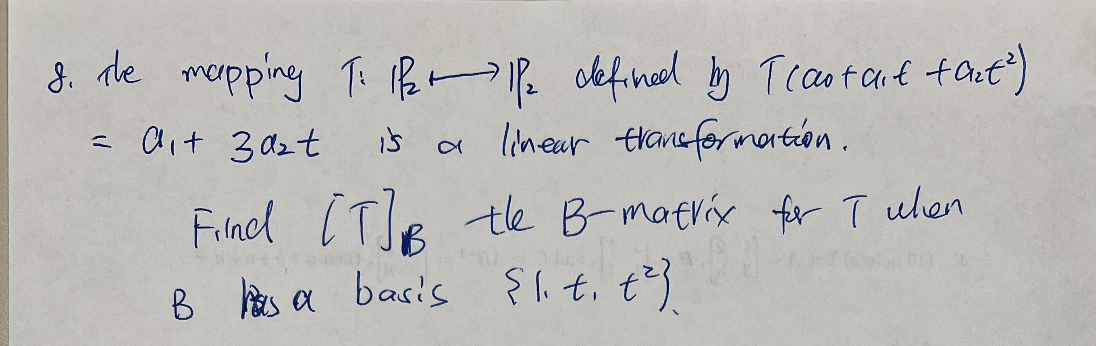 8. the mapping T: ℙ₂ ⟼ ℙ₂ defined by T(a₀+a₁t+a₂t²)
= a₁+ 3a₂t is a linear transformation.
Find [T]_B the B-matrix for T when
B has a basis {1, t, t²}.